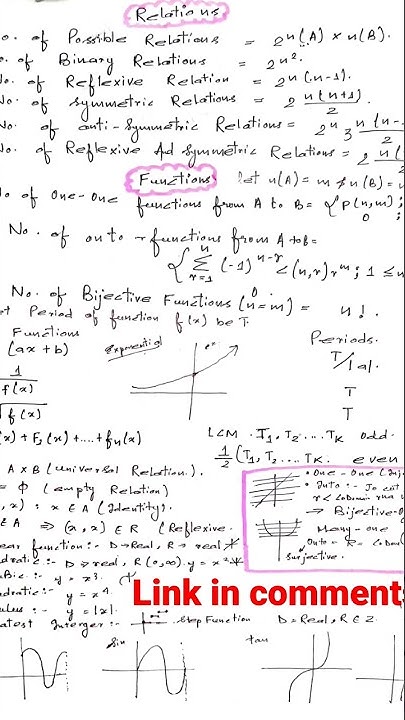 Relations
o. of Possible Relations = 2^n(A) × n(B).
. of Binary Relations = 2^n².
o. of Reflexive Relation = 2^n(n-1).
No. of Symmetric Relations = 2^n(n+1)/2.
No. of anti-Symmetric Relations = 2^n 3^n(n-
No. of Reflexive Ad Symmetric Relations = 2^n(
Functions let n(A) = m & n(B) = n
No of One-One functions from A to B = { P(n,m);
0 ;
No. of onto functions from A to B =
{ Σ (-1)^n-r c(n,r) r^m ; 1 ≤ n
n
r=1
0
No. of Bijective Functions (n=m) = n!.
t Period of function f(x) be T.
Functions Periods.
(ax+b) Exponential e^x T/|a|.
1/f(x) T
√f(x) T
(x) + F₂(x) + .... + fn(x) LCM T₁, T₂ .... TK odd.
½ (T₁, T₂ .... TK. even
A × B (universal Relation).
= ϕ (empty Relation)
, x) : x ∈ A (Identity).
∈ A ⇒ (x, x) ∈ R (Reflexive.
ear function :- D → Real, R → real
dratic :- D → real, R (0,∞). y = x²
bic :- y = x³.
dratic :- y = x⁴.
ulus :- y = |x|.
atest Interger :- Step Function D = Real, R ∈ Z.
One-One (Inj
Onto :-
→ Bijective-
Many-one
Onto -
Surjective.
Link in comment
Sin tan